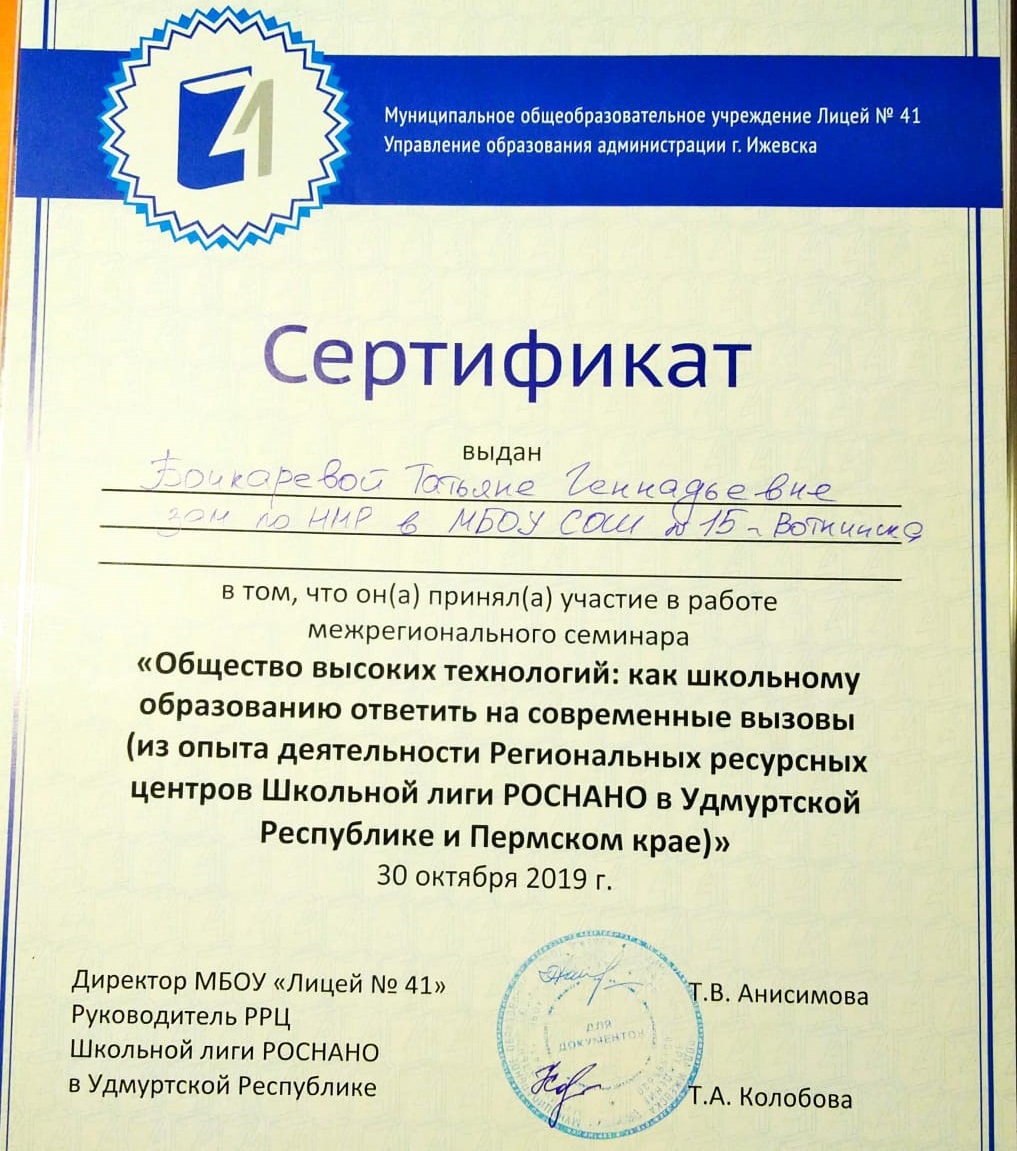 41
Муниципальное общеобразовательное учреждение Лицей № 41
Управление образования администрации г. Ижевска
Сертификат
выдан
Бочкаревой Татьяне Геннадьевне
зам по НМР в МБОУ СОШ №15 г. Воткинска
в том, что он(а) принял(а) участие в работе
межрегионального семинара
«Общество высоких технологий: как школьному
образованию ответить на современные вызовы
(из опыта деятельности Региональных ресурсных
центров Школьной лиги РОСНАНО в Удмуртской
Республике и Пермском крае)»
30 октября 2019 г.
Директор МБОУ «Лицей № 41»
Т.В. Анисимова
Руководитель РРЦ
Школьной лиги РОСНАНО
в Удмуртской Республике
Т.А. Колобова
ДЛЯ
ДОКУМЕНТОВ